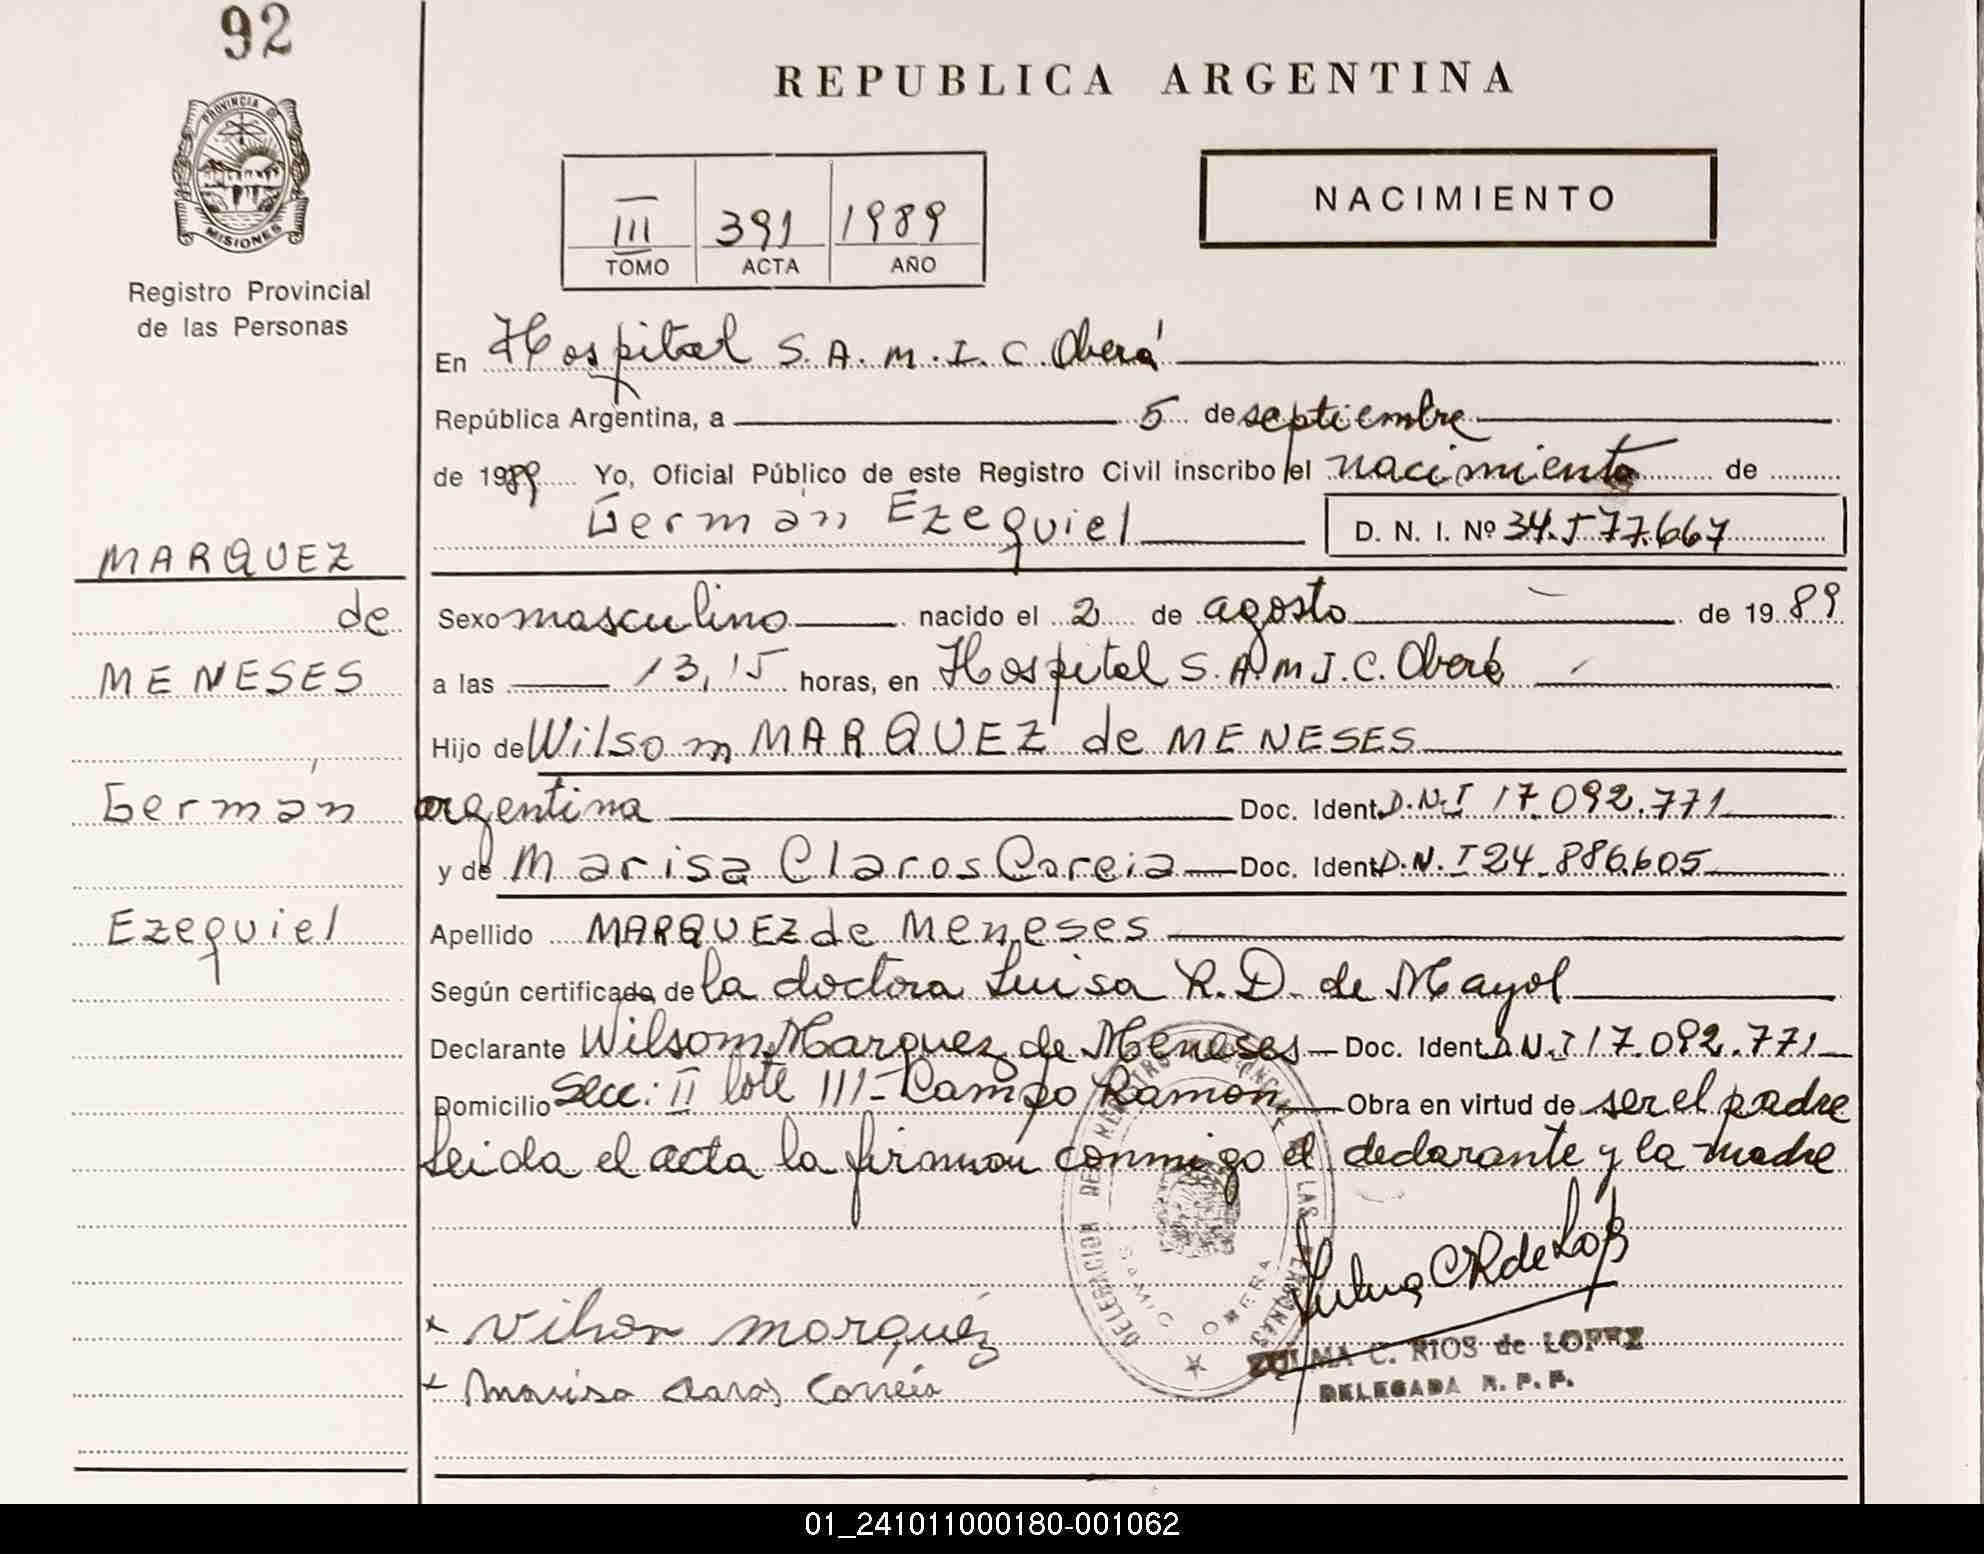 92
REPUBLICA ARGENTINA
PROVINCIA DE
MISIONES
Registro Provincial
de las Personas
III 391 1989
TOMO ACTA AÑO
NACIMIENTO
En Hospital S.A.M.I.C. Oberá
República Argentina, a 5 de septiembre
de 1989 Yo, Oficial Público de este Registro Civil inscribo el nacimiento de
Germán Ezequiel D. N. I. Nº 34.577.667
MARQUEZ
de
MENESES
Germán
Ezequiel
Sexo masculino nacido el 2 de agosto de 1989
a las 13,15 horas, en Hospital S.A.M.I.C. Oberá
Hijo de Wilsom MARQUEZ de MENESES
argentina Doc. Ident. D.N.I 17.092.771
y de Marisa Claros Coreia Doc. Ident. D.N.I 24.886.605
Apellido MARQUEZ de Meneses
Según certificado de la doctora Luisa R. D. de Mayol
Declarante Wilsom Marquez de Meneses Doc. Ident. D.N.I 17.092.771
Domicilio Secc: II lote III - Campo Ramon Obra en virtud de ser el padre
Leida el acta la firman conmigo el declarante y la madre
DELEGACION DEL REGISTRO PROVINCIAL DE LAS PERSONAS
SAMIC OBERA
x vilson marquéz
x marisa claros correia
ZULMA C. RIOS de LOPEZ
DELEGADA R. P. P.
01_241011000180-001062